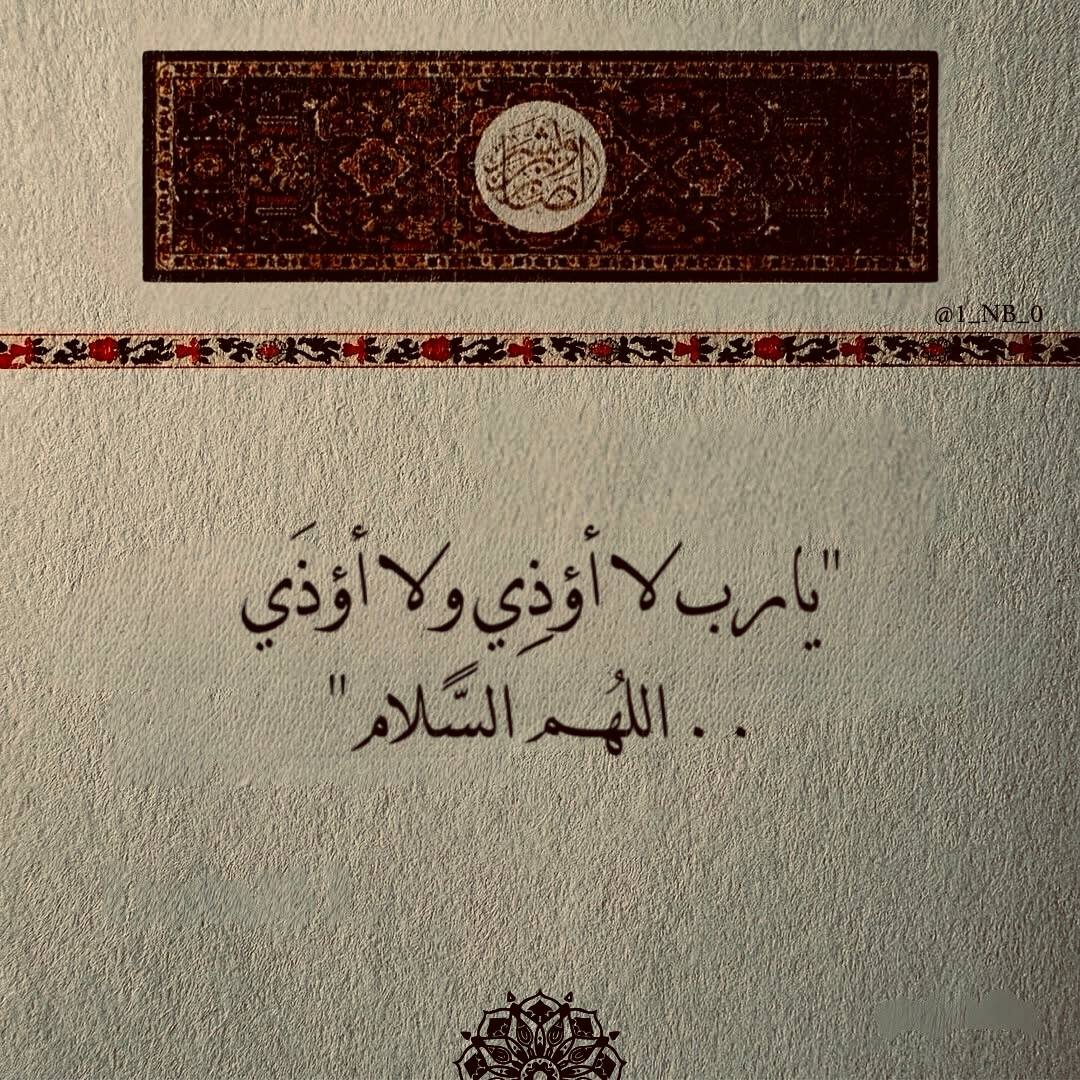 @1_NB_0
"يارب لا أؤذِي ولا أؤذَي
. . اللهُم السَّلام "